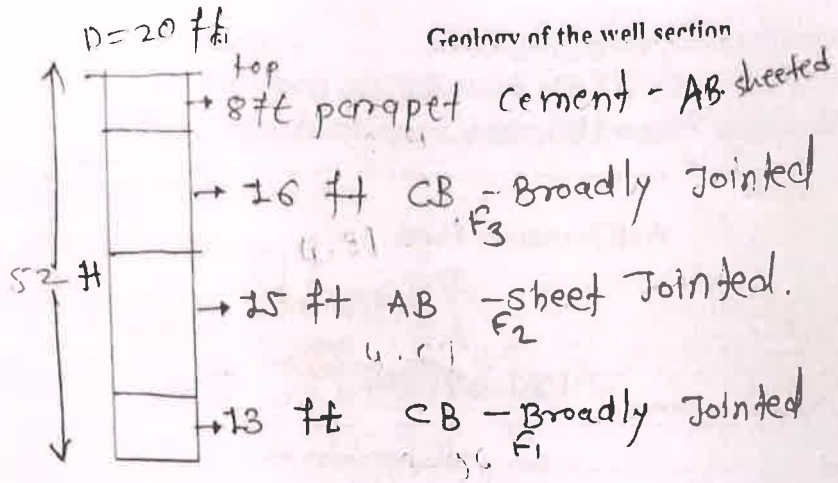 D=20 ft. Geology of the well section
top
8ft parapet cement - AB. sheeted
16 ft CB - Broadly Jointed
F3
52 ft
15 ft AB - sheet Jointed.
F2
13 ft CB - Broadly Jointed
F1